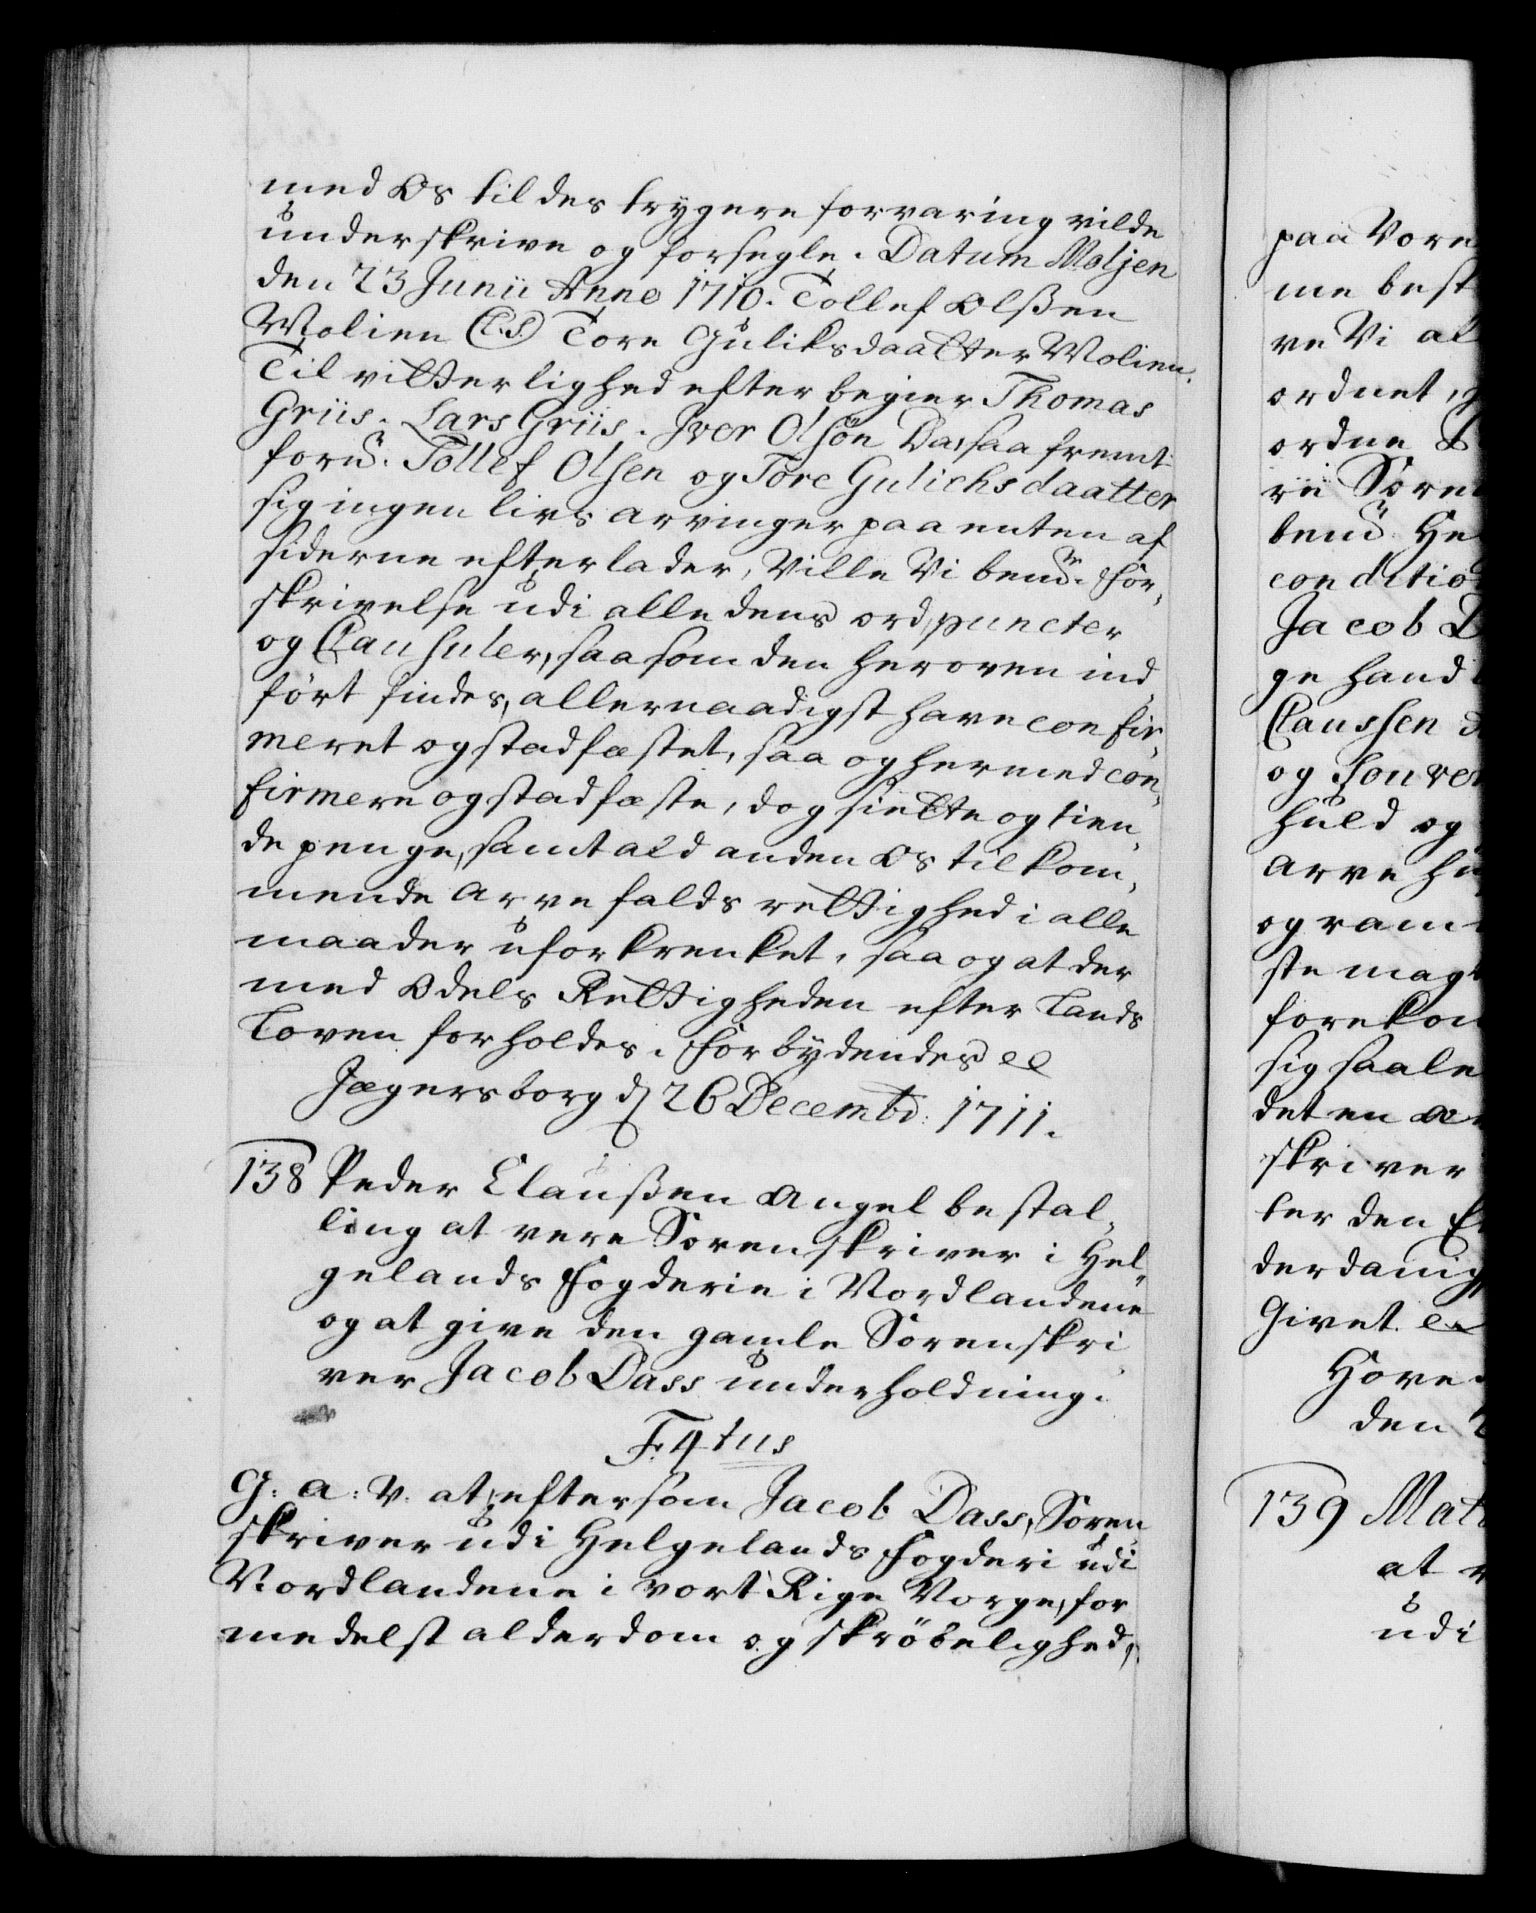 med Os til des trygere forvaring vilde
underskrive og forsegle. Datum Moljen
den 23 Junii Anno 1710. Tollef Olßen
Molien (L.S.) Tore Guliksdaatter Molien.
Til vitterlighed efter begier Thomas
Griis. Lars Griis. Iver Olsön Da, saa fremt
foru. Tollef Olsen og Tore Gulichsdaatter
sig ingen livs arvinger paa enten af
siderne efterlader, Ville Vi bemte. for,
skrivelse udi alle dens ord, puncter
og Clausuler, saasom den heroven ind,
fört findes, allernaadigst have confir,
meret og stadfæstet, saa og hermed con,
firmere og stadfæste, dog siette og tien,
de penge, samt ald anden Os tilkom,
mende Arvefalds rettighed i alle
maader uforkrenket, saa og at der
med Odels Rettigheden efter Lands
Loven forholdes. Forbydendes ee
Jægersborg d 26 Decembr: 1711.
138 Peder Claußen Angel bestal,
ling at vere Sorenskriver i Hel,
gelands Fogderie i Nordlandene
og at give den gamle Sorenskri
ver Jacob Dass underholdning.
F. 4tus
G: A: V. at, eftersom Jacob Dass, Soren
skriver udi Helgelands Fogderi udi
Nordlandene i vort Rige Norge, for
medelst alderdom og skröbelighed,
paa Vore
me best
re Vi al
ordnet, g
ordne
rii Soren
bemt. He
conditio
Jacob D
ge hand
Claussen
og souver
huld og
Arve
og ram
ste magt
forekom
sig saale
det en
skriver
ter den
derdanig
Givet. ee
Hove
den
139 Mat
at v
udi